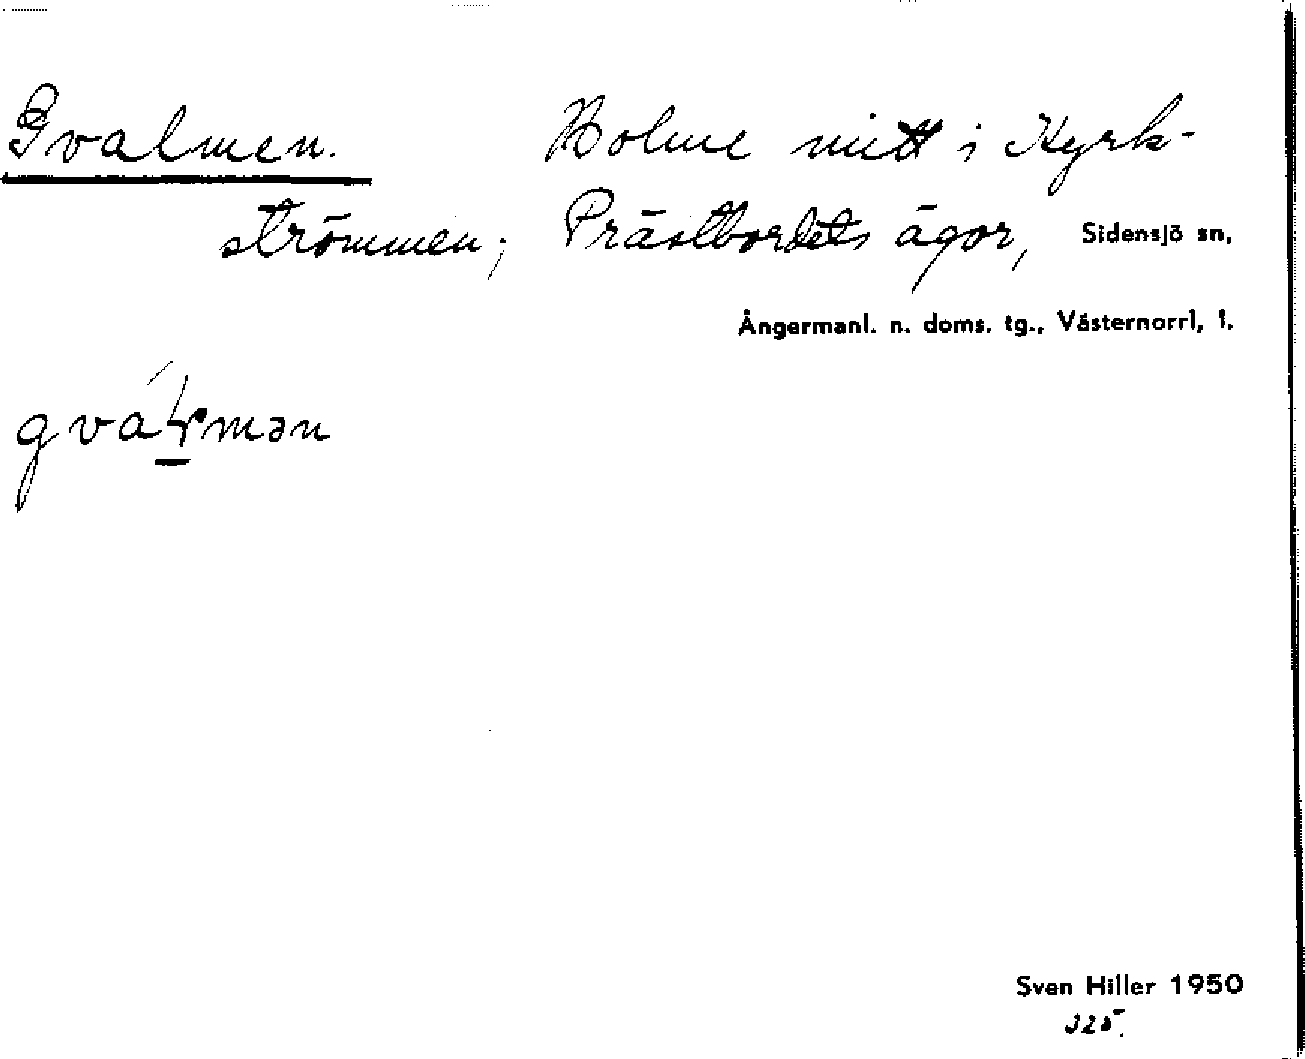 Gvalmen. Holme mitt i Kyrk-
strömmen; Prästbordets ägor, Sidensjö sn,
Ångermanl. n. doms. tg., Västernorrl, l.
Sven Hiller 1950
325.